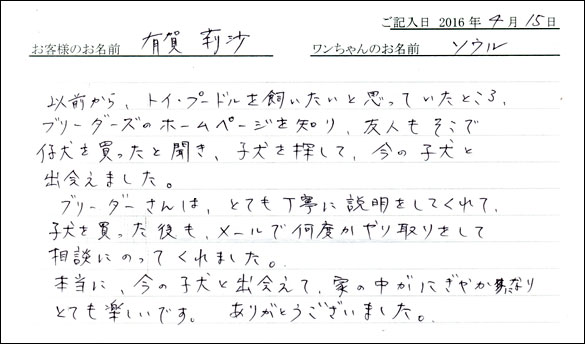 ご記入日 2016 年 4 月 15 日
お客様のお名前 有賀 莉沙 ワンちゃんのお名前 ソウル
以前から、トイ・プードルを飼いたいと思っていたところ、
ブリーダーズのホームページを知り、友人もそこで
仔犬を買ったと聞き、子犬を探して、今の子犬と
出会えました。
ブリーダーさんは、とても丁寧に説明をしてくれて、
子犬を買った後も、メールで何度かやり取りをして
相談にのってくれました。
本当に、今の子犬と出会えて、家の中がにぎやかになり
とても楽しいです。 ありがとうございました。